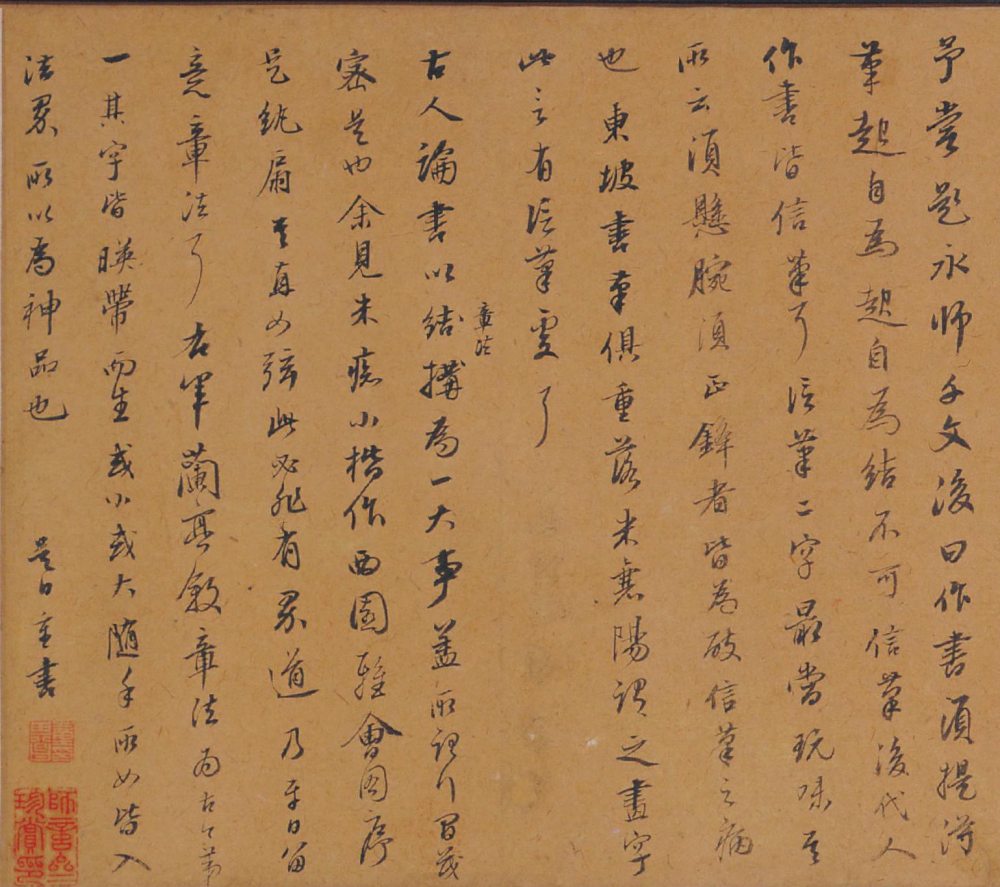 予嘗題永師千文後曰作書須提得
筆起自為起自為結不可信筆後代人
作書皆信筆耳信筆二字最當玩味吾
所云須懸腕須正鋒者皆為破信筆之病
也東坡書筆俱重落米襄陽謂之畫字
此言有信筆處耳
章法
古人論書以結搆為一大事蓋所謂行間茂
密是也余見米痴小楷作西園雅會圖序
是紈扇其直如弦此必非有異道乃平日留
意章法耳 右軍蘭亭敘章法為古今第
一其字皆暎帶而生或小或大隨手所如皆入
法界所以為神品也
是日重書